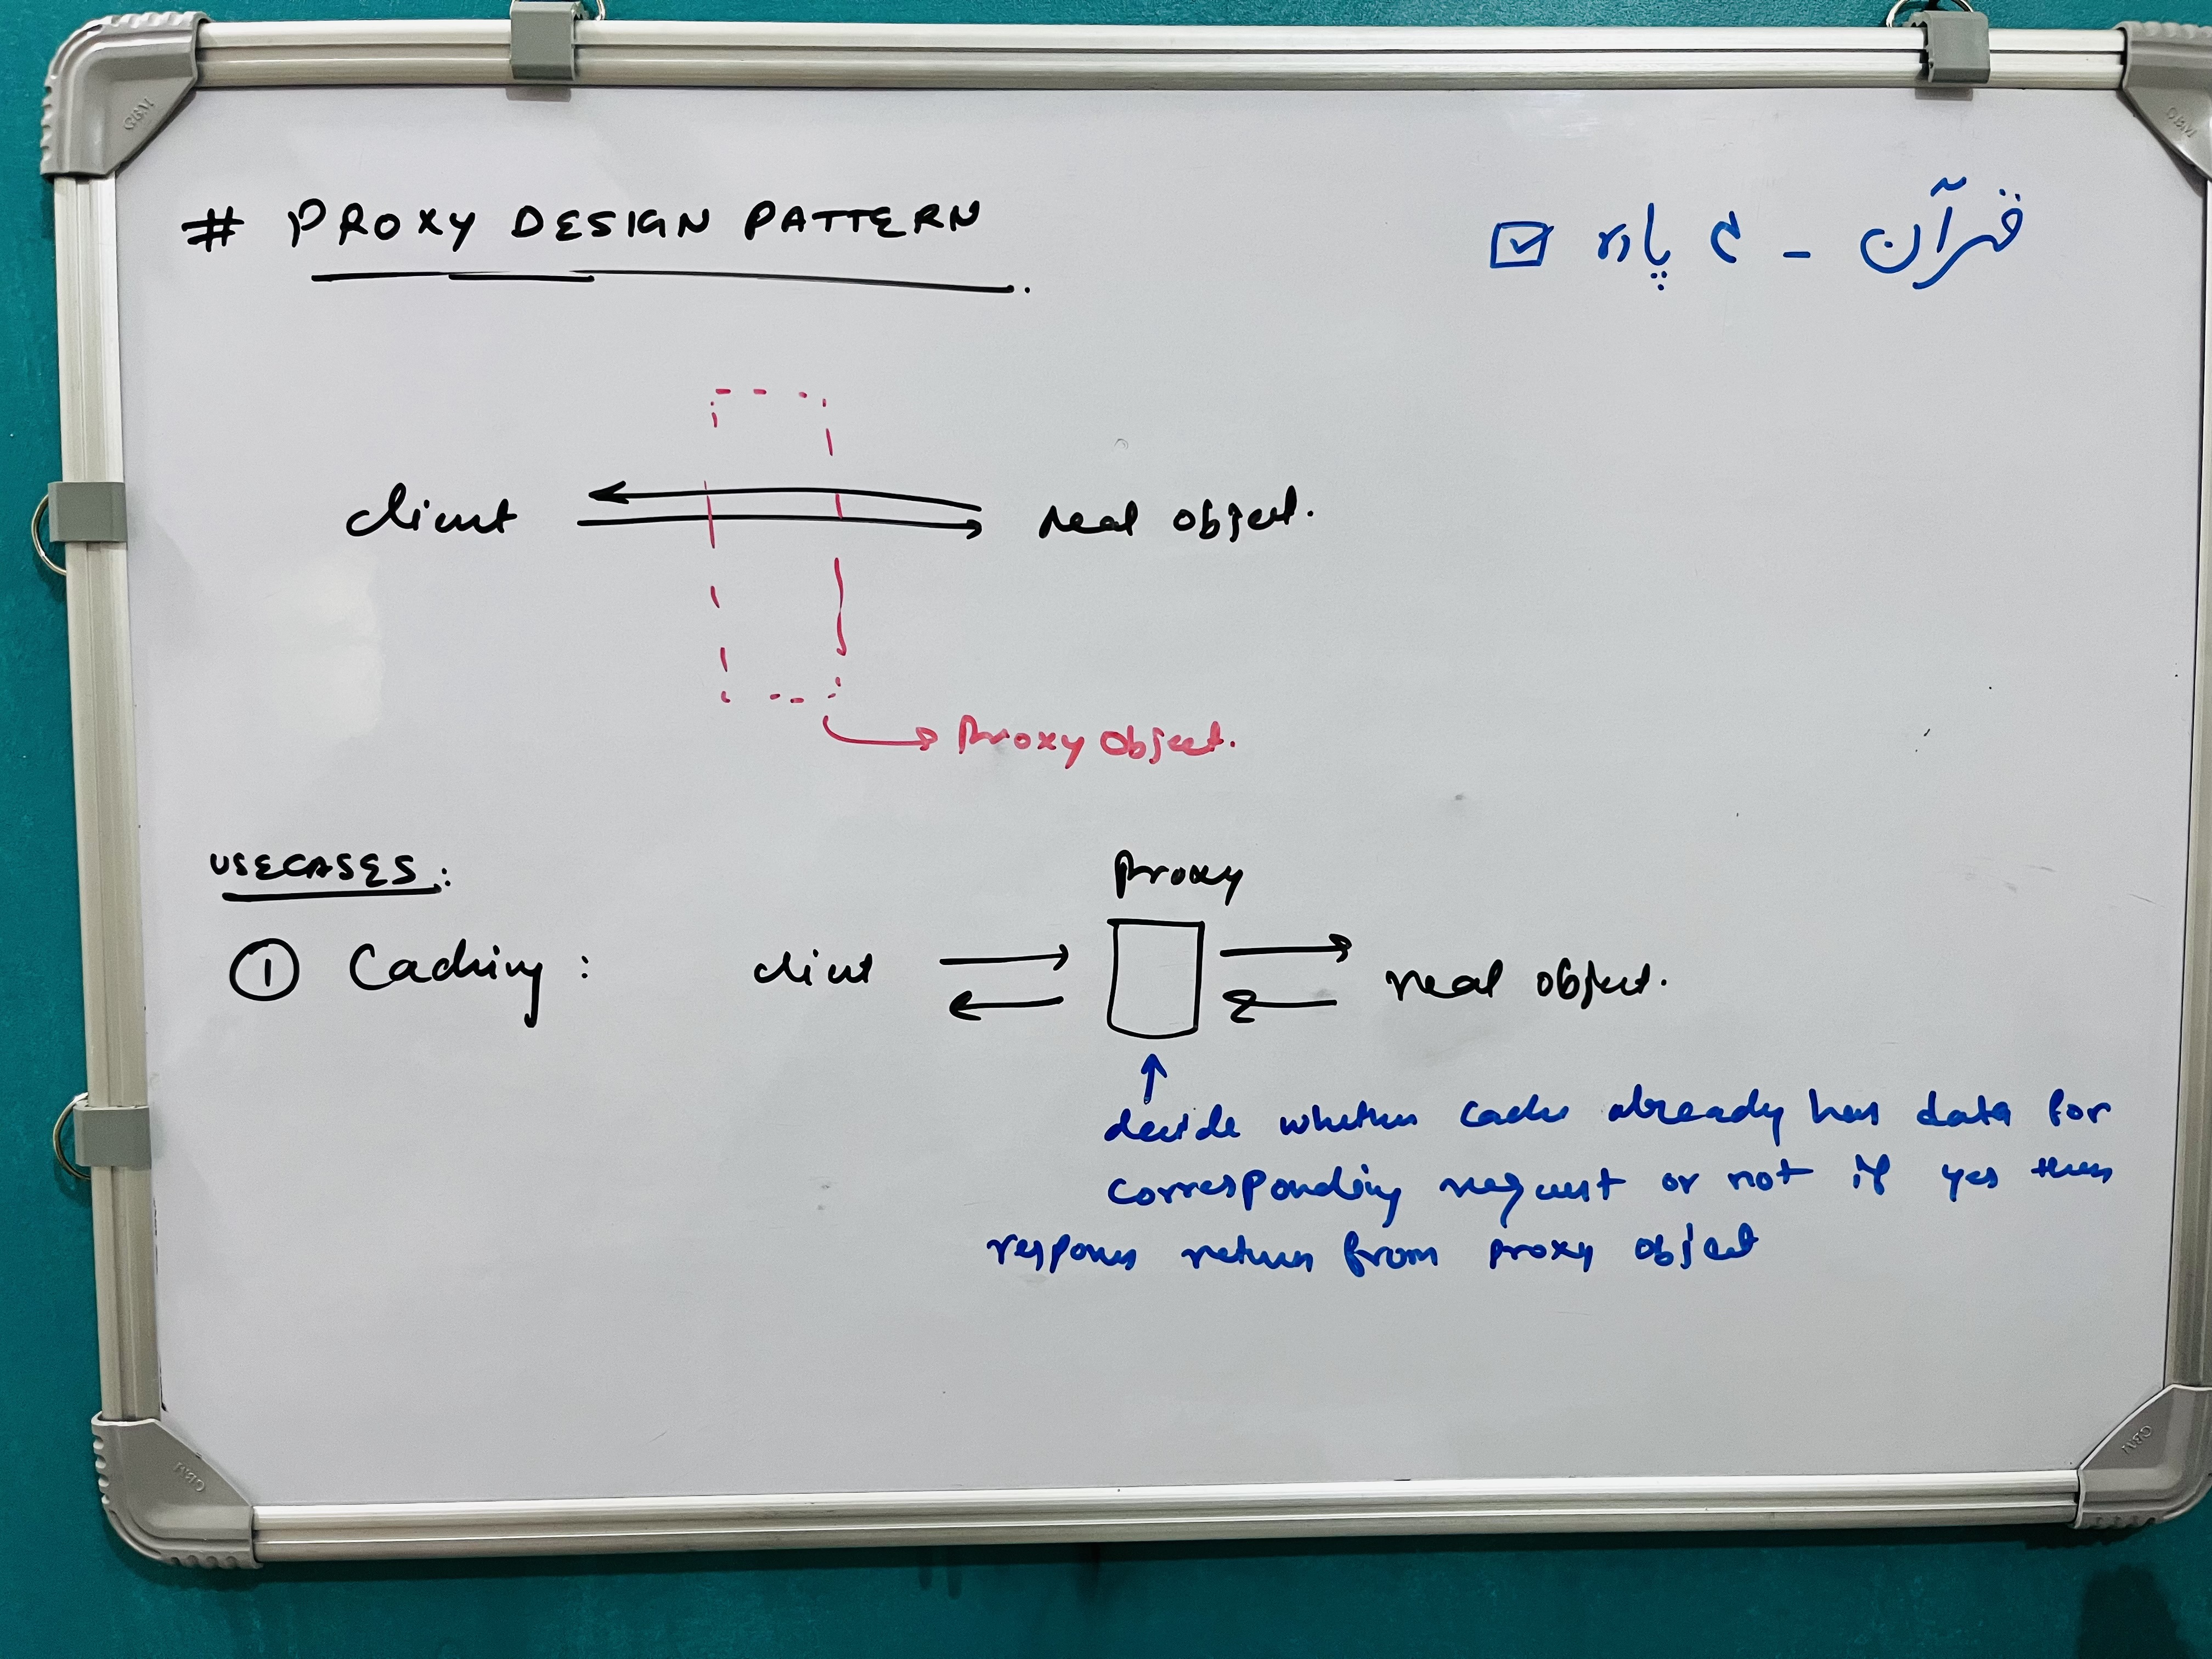 # PROXY DESIGN PATTERN
قرآن - ۴ پارہ
client
real object.
Proxy Object.
USECASES:
① Caching:
client
Proxy
real object.
decide whether cache already has data for
corresponding request or not if yes then
response return from proxy object
GBM
GBM
GBM
GBM